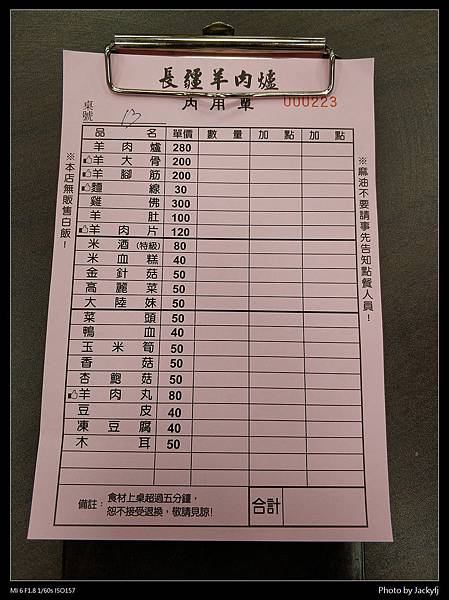 長疆羊肉爐
內用單 000223
桌號 13
品名 單價 數量 加點 加點
羊肉爐 280
羊大骨 200
羊腳筋 200
麵線 30
雞佛 300
羊肚 100
羊肉片 120
米酒(特級) 80
米血糕 40
金針菇 50
高麗菜 50
大陸妹 50
菜頭 50
鴨血 40
玉米筍 50
香菇 50
杏鮑菇 50
羊肉丸 80
豆皮 40
凍豆腐 40
木耳 50
備註：食材上桌超過五分鐘，
恕不接受退換，敬請見諒!
合計
※本店無販售白飯！
※麻油不要請事先告知點餐人員！
MI 6 F1.8 1/60s ISO157
Photo by Jackyfj